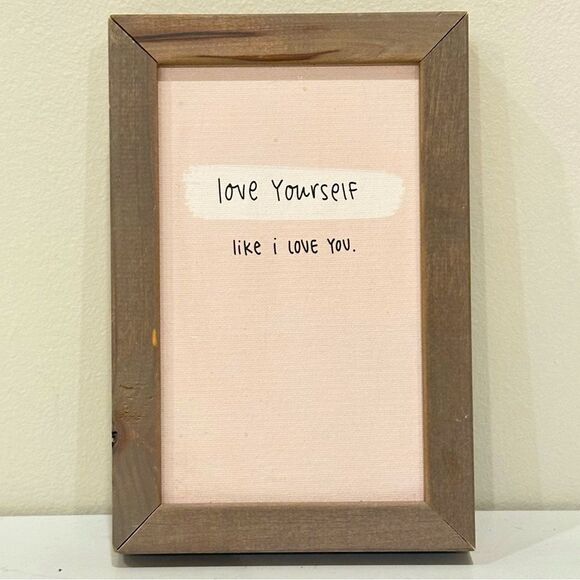 love Yourself
like i love you.